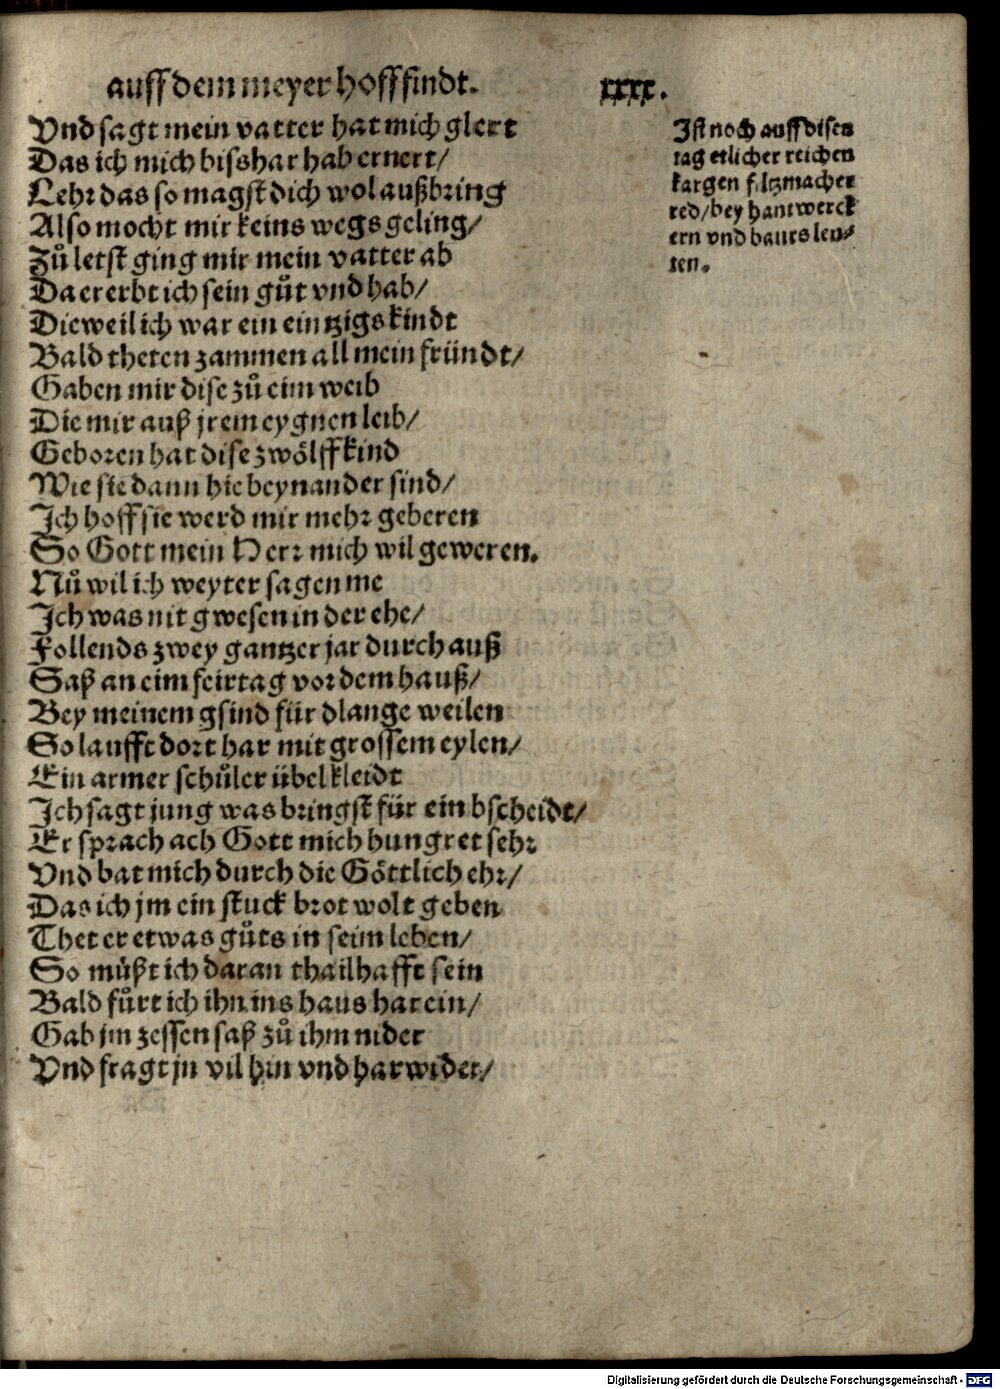 auff dem meyer hoff findt.
xxxx.
Vnd sagt mein vatter hat mich glert
Das ich mich bisshar hab ernert/
Lehr das so magst dich wol außbring
Also mocht mir keins wegs geling/
Zů letst ging mir mein vatter ab
Da ererbt ich sein gůt vnd hab/
Dieweil ich war ein eintzigs kindt
Bald theten zammen all mein fründt/
Gaben mir dise zů eim weib
Die mir auß jrem eygnen leib/
Geboren hat dise zwölff kind
Wie sie dann hie beynander sind/
Ich hoff sie werd mir mehr geberen
So Gott mein Herr mich wil geweren.
Nů wil ich weyter sagen me
Ich was nit gwesen in der ehe/
Follends zwey gantzer jar durchauß
Saß an eim feirtag vor dem hauß/
Bey meinem gsind für dlange weilen
So laufft dort har mit grossem eylen/
Ein armer schůler übel kleidt
Ich sagt jung was bringst für ein bscheidt/
Er sprach ach Gott mich hungret sehr
Vnd bat mich durch die Göttlich ehr/
Das ich jm ein stuck brot wolt geben
Thet er etwas gůts in seim leben/
So můßt ich daran thailhafft sein
Bald fůrt ich ihn ins haus harein/
Gab jm zessen saß zů ihm nider
Vnd fragt jn vil hin vnd harwider/
Ist noch auff disen
tag etlicher reichen
kargen filtzmacher
red/bey hantwerck
ern vnd baurs leu/
ten.
Digitalisierung gefördert durch die Deutsche Forschungsgemeinschaft - DFG